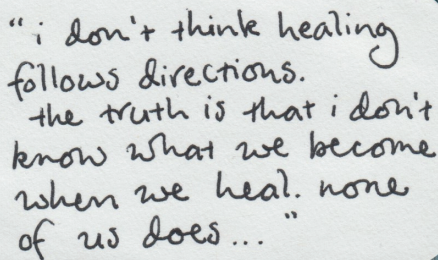 "i don't think healing
follows directions.
the truth is that i don't
know what we become
when we heal. none
of us does..."